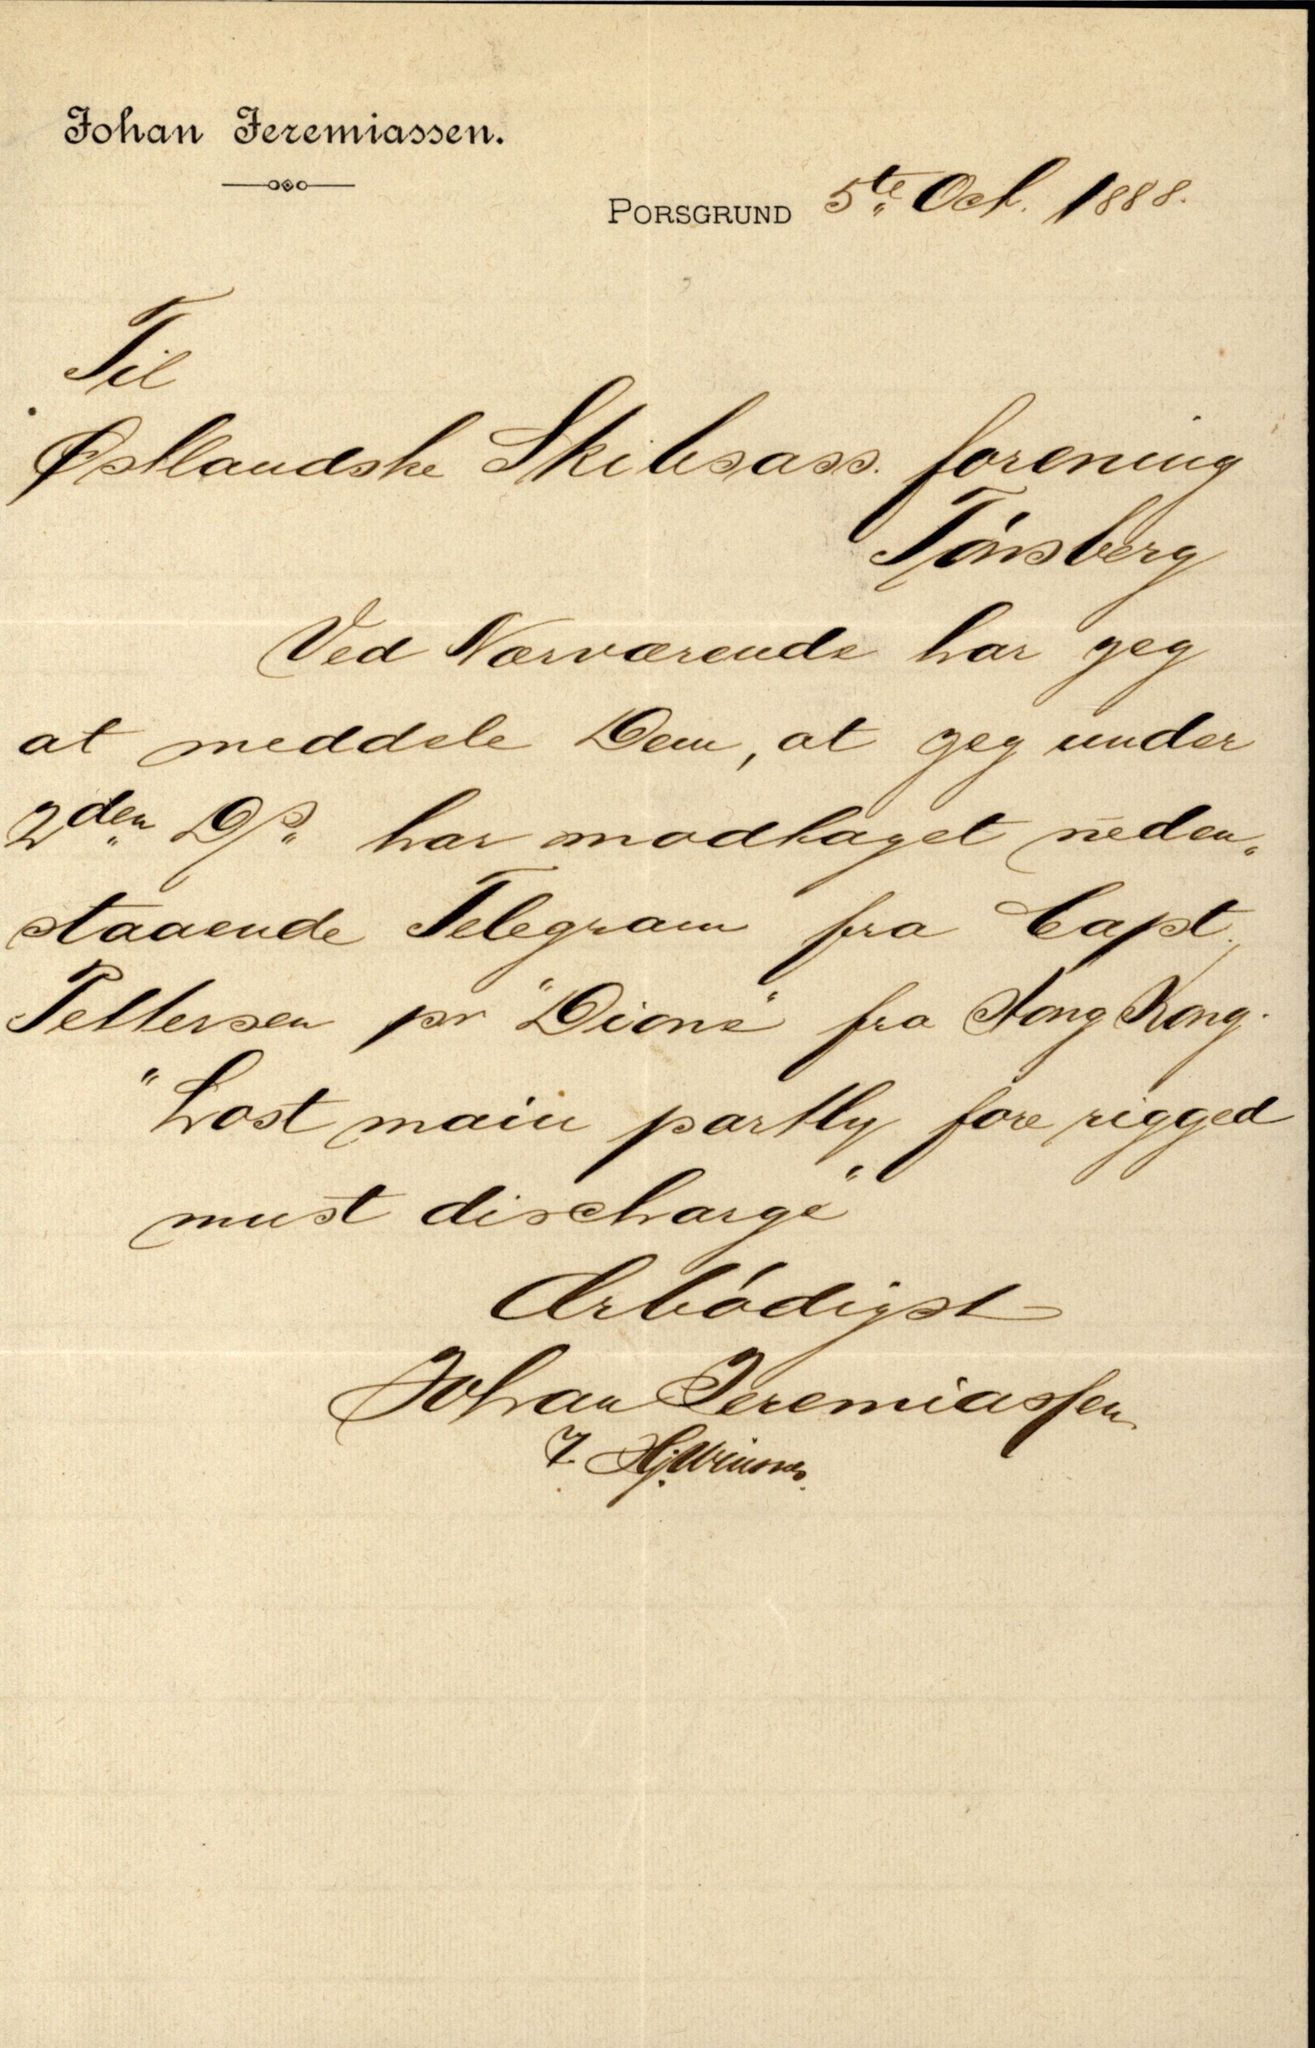 Johan Jeremiassen.
PORSGRUND 5te Oct. 1888.
Til
Østlandske Skibsass. forening
Tønsberg
Ved Nærværende har jeg
at meddele Dem, at jeg under
2den Ds. har modtaget neden„
staaende Telegram fra Capt.
Pettersen pr "Dione" fra Hong Kong.
"Lost main partly fore rigged
must discharge"
Ærbödigst
Johan Jeremiassen